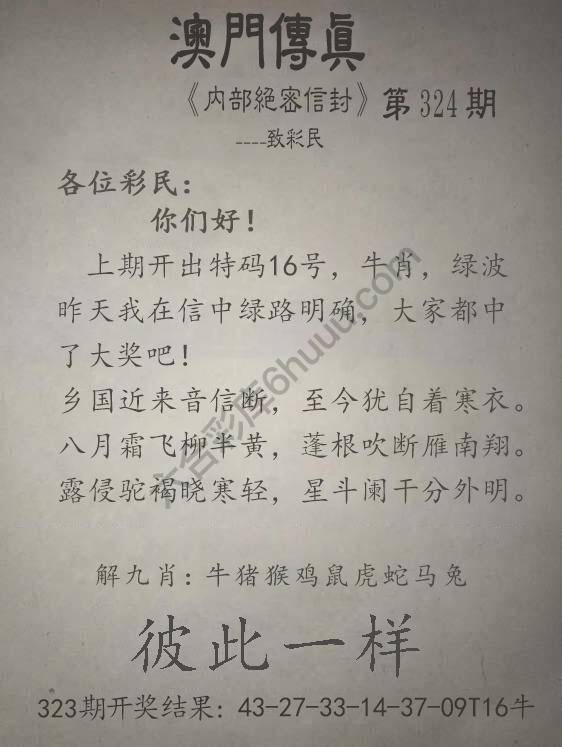 澳門傳真
《内部絕密信封》第324期
----致彩民
各位彩民：
你们好！
上期开出特码16号，牛肖，绿波
昨天我在信中绿路明确，大家都中
了大奖吧！
乡国近来音信断，至今犹自着寒衣。
八月霜飞柳半黄，蓬根吹断雁南翔。
露侵驼褐晓寒轻，星斗阑干分外明。
解九肖：牛猪猴鸡鼠虎蛇马兔
彼此一样
323期开奖结果：43-27-33-14-37-09T16牛
六合彩库6huuu.com